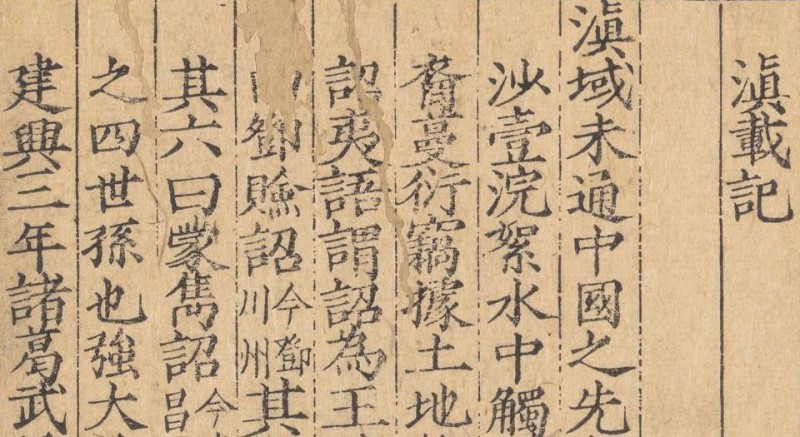 滇載記
滇域未通中國之先
沙壹浣絮水中觸
裔蔓衍竊據土地
詔夷語謂詔為王
鄧賧詔今鄧川州其
其六曰蒙雋詔今昌
之四世孫也強大
建興三年諸葛武